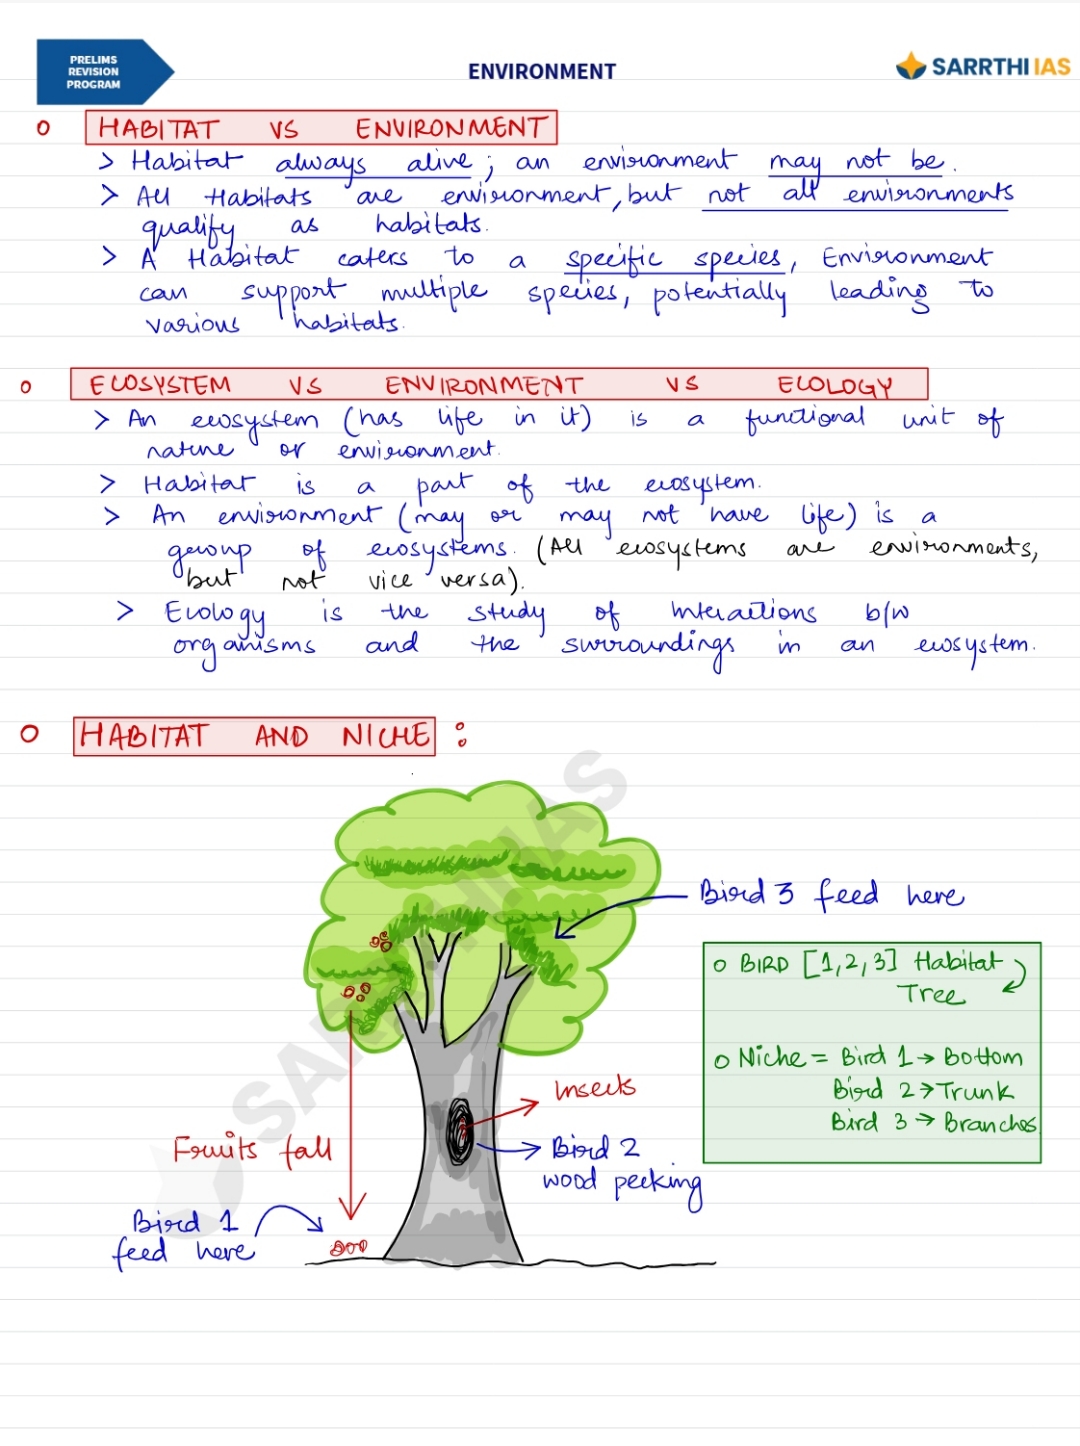 PRELIMS
REVISION
PROGRAM
ENVIRONMENT
SARRTHI IAS
o HABITAT VS ENVIRONMENT
> Habitat always alive; an environment may not be.
> All Habitats are environment, but not all environments
qualify as habitats.
> A Habitat caters to a specific species, Environment
can support multiple species, potentially leading to
various habitats.
o ECOSYSTEM VS ENVIRONMENT VS ECOLOGY
> An ecosystem (has life in it) is a functional unit of
nature or environment.
> Habitat is a part of the ecosystem.
> An environment (may or may not have life) is a
group of ecosystems. (All ecosystems are environments,
but not vice versa).
> Ecology is the study of interactions b/w
organisms and the surroundings in an ecosystem.
o HABITAT AND NICHE :
Bird 3 feed here
o BIRD [1,2,3] Habitat
Tree
o Niche = Bird 1 → Bottom
Bird 2 → Trunk
Bird 3 → Branches
Insects
Fruits fall
Bird 2
wood pecking
Bird 1
feed here
SARRTHI IAS